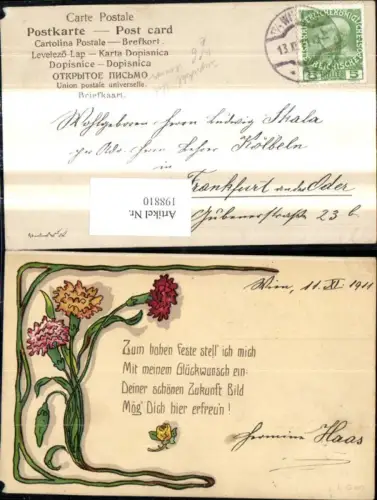 Carte Postale
Postkarte — Post card
Cartolina Postale — Brefkort
Levelező-Lap — Karta Dopisnica
Dopisnice - Dopisnica
ОТКРЫТОЕ ПИСЬМО
Union postale universelle.
Briefkaart.
5 5
Wohlgeboren Herrn Ludwig Skala
per Adr. Herrn Kölbeln
in
Frankfurt an der Oder
Gubenerstraße 23 b
Artikel Nr.
198810
Wien, 11. XI 1911
Zum hohen Feste stell' ich mich
Mit meinem Glückwunsch ein:
Deiner schönen Zukunft Bild
Mög' Dich hier erfreu'n!
Hermine Haas